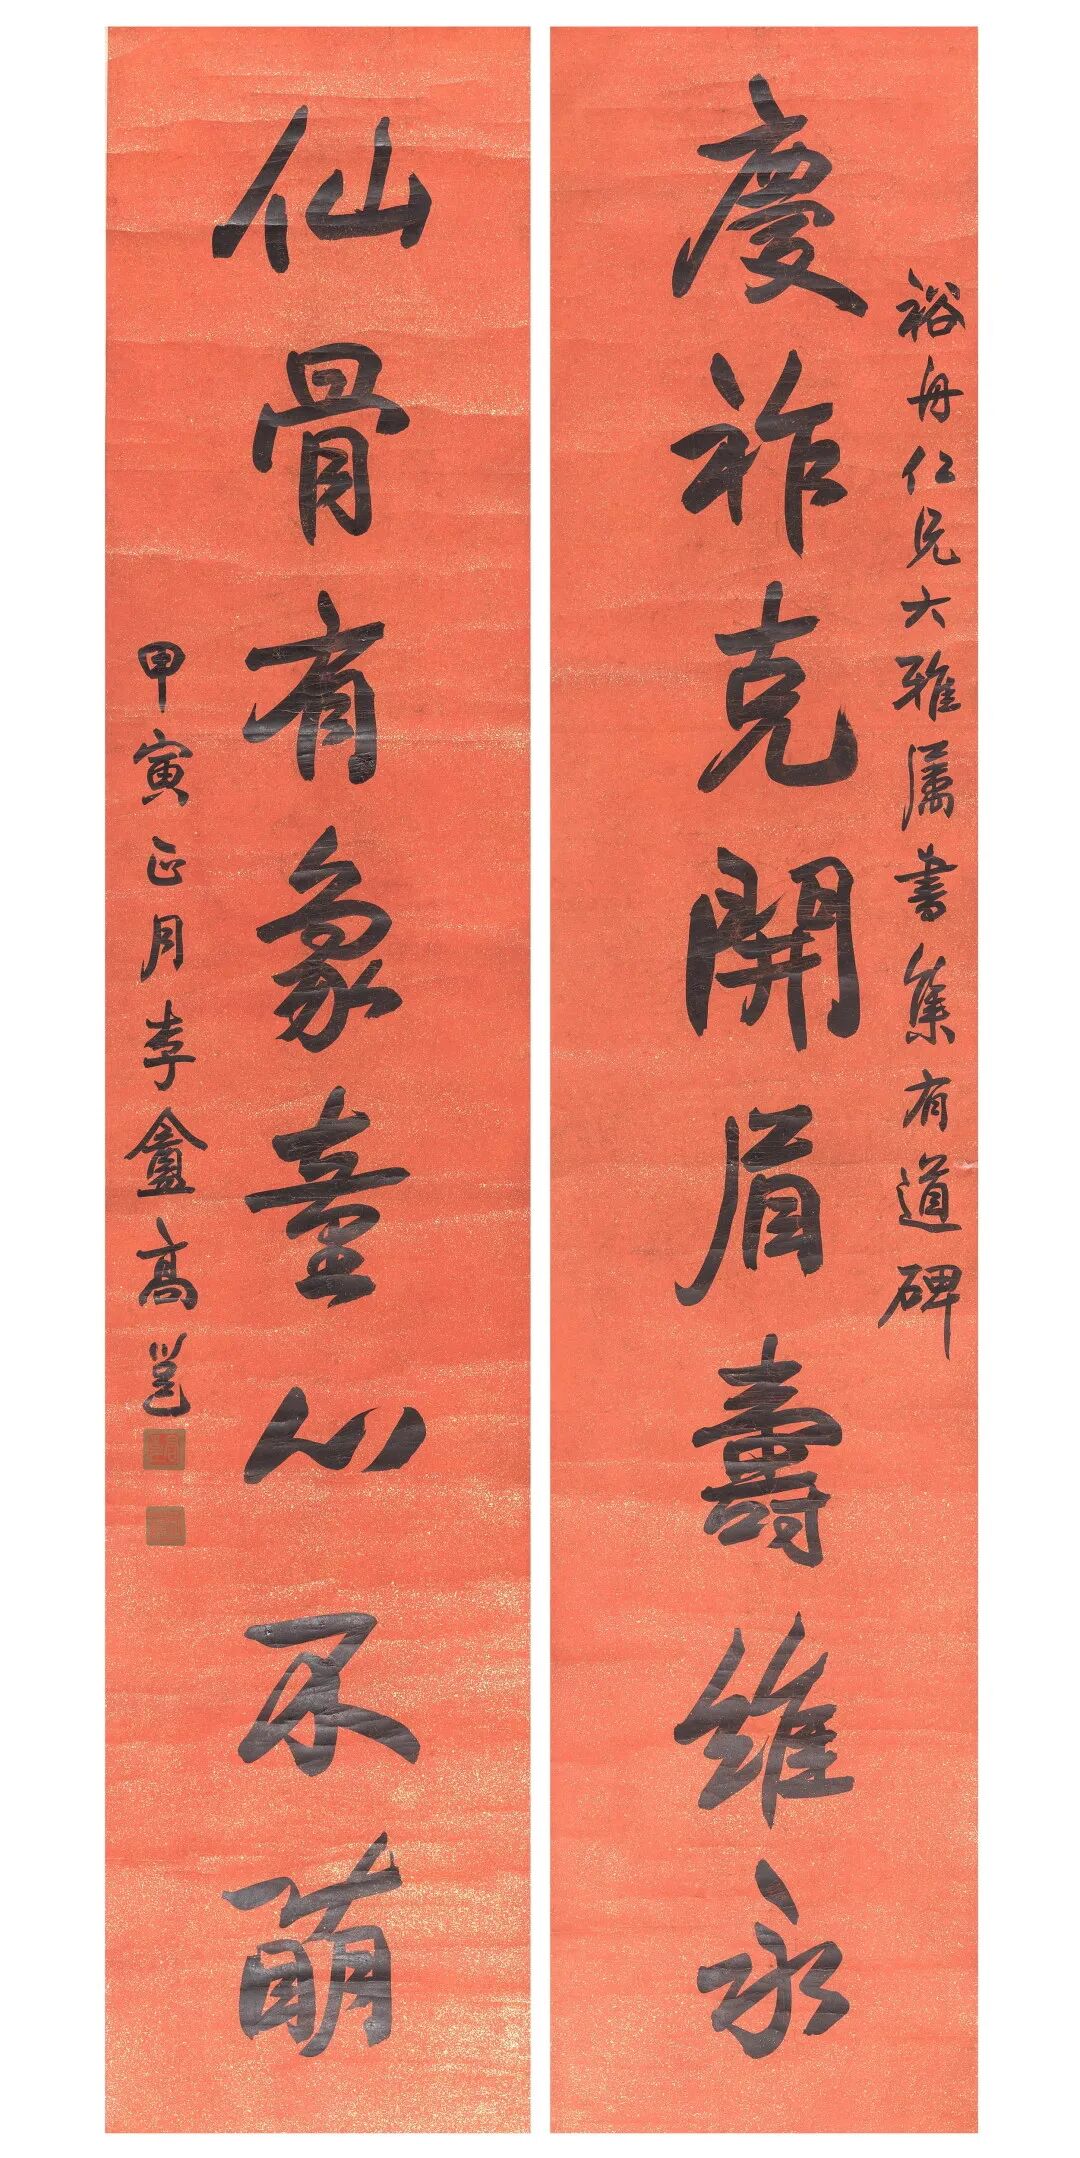 裕舟仁兄大雅属書集有道碑
慶祚克開眉壽維永
仙骨有象童心不萌
甲寅正月李盦高邕